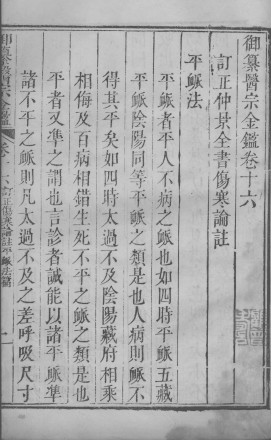 御纂醫宗金鑑卷十六
訂正仲景全書傷寒論註
平脈法
平脈者平人不病之脈也如四時平脈五藏
平脈陰陽同等平脈之類是也人病則脈不
得其平矣如四時太過不及陰陽藏府相乘
相侮及百病相錯生死不平之脈之類是也
平者又準之謂也言診者誠能以諸平脈準
諸不平之脈則凡太過不及之差呼吸尺寸
訂正傷寒論註平脈法篇